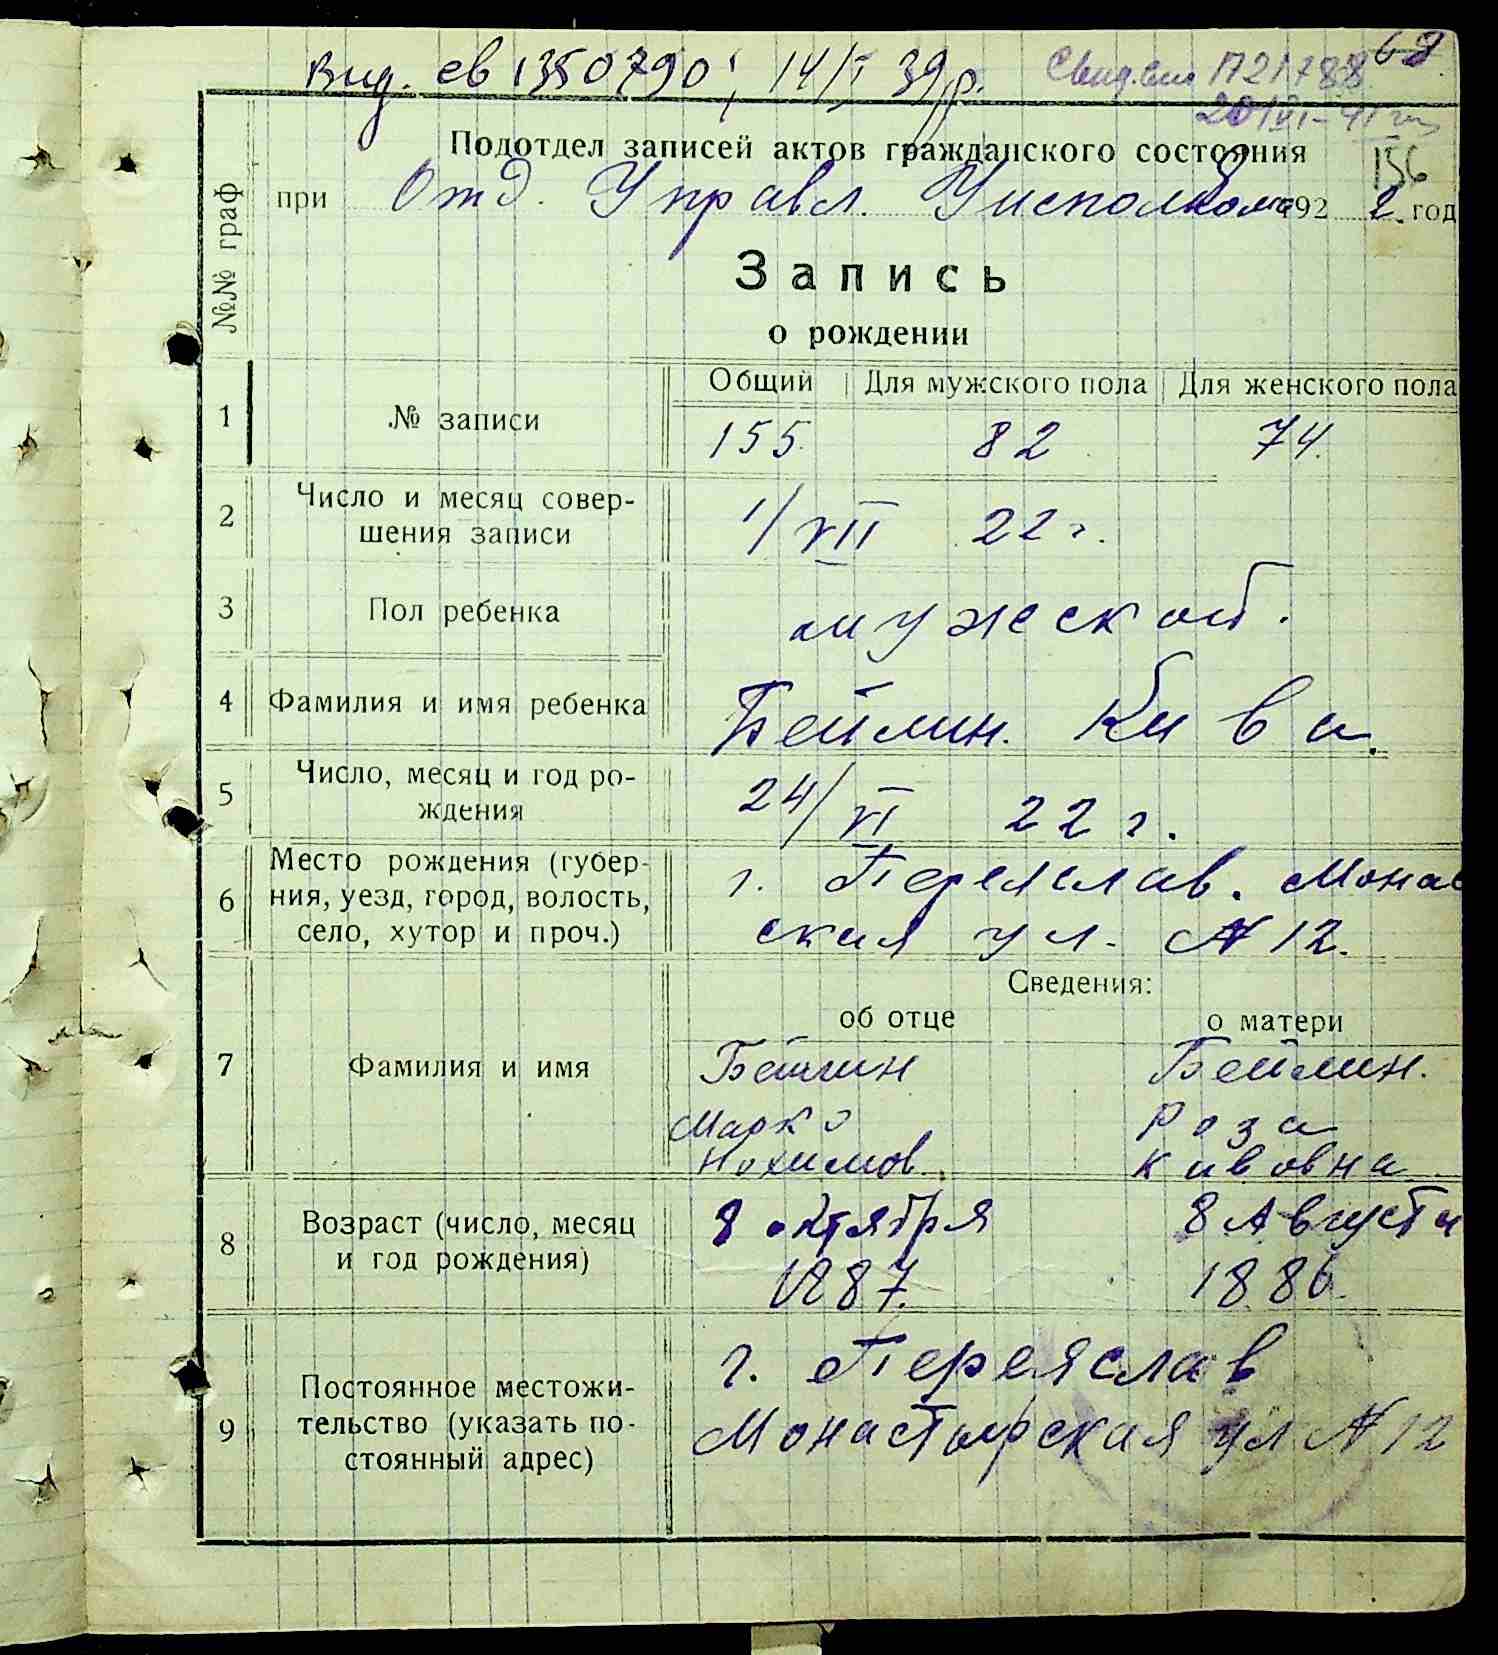 Вид. св 1350790, 14/I 39 р.
П 21788
68
156
Подотдел записей актов гражданского состояния
при Отд. Управл. Уисполкома 192 2. год
№№ граф
Запись
о рождении
Общий Для мужского пола Для женского пола
1 № записи 155. 82 74.
2 Число и месяц совер-
шения записи 1/VII 22 г.
3 Пол ребенка мужской.
4 Фамилия и имя ребенка Бейлин. Кива.
5 Число, месяц и год ро-
ждения 24/VI 22 г.
6 Место рождения (губер-
ния, уезд, город, волость,
село, хутор и проч.) г. Переяслав. Монас
ская ул. № 12.
Сведения:
об отце о матери
7 Фамилия и имя Бейлин Бейлин.
Марко Роза
Нохимов. Кивовна
8 Возраст (число, месяц
и год рождения) 8 октября 8 Августа
1887. 1886.
9 Постоянное местожи-
тельство (указать по-
стоянный адрес) г. Переяслав
Монастырская ул № 12